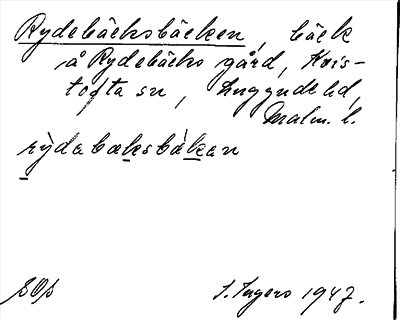 Rydebäcksbäcken, bäck
å Rydebäcks gård, Kvis-
tofta sn, Luggude hd,
Malm. l.
rỳdabæksbákan
SOp
S. Ingers 1947.